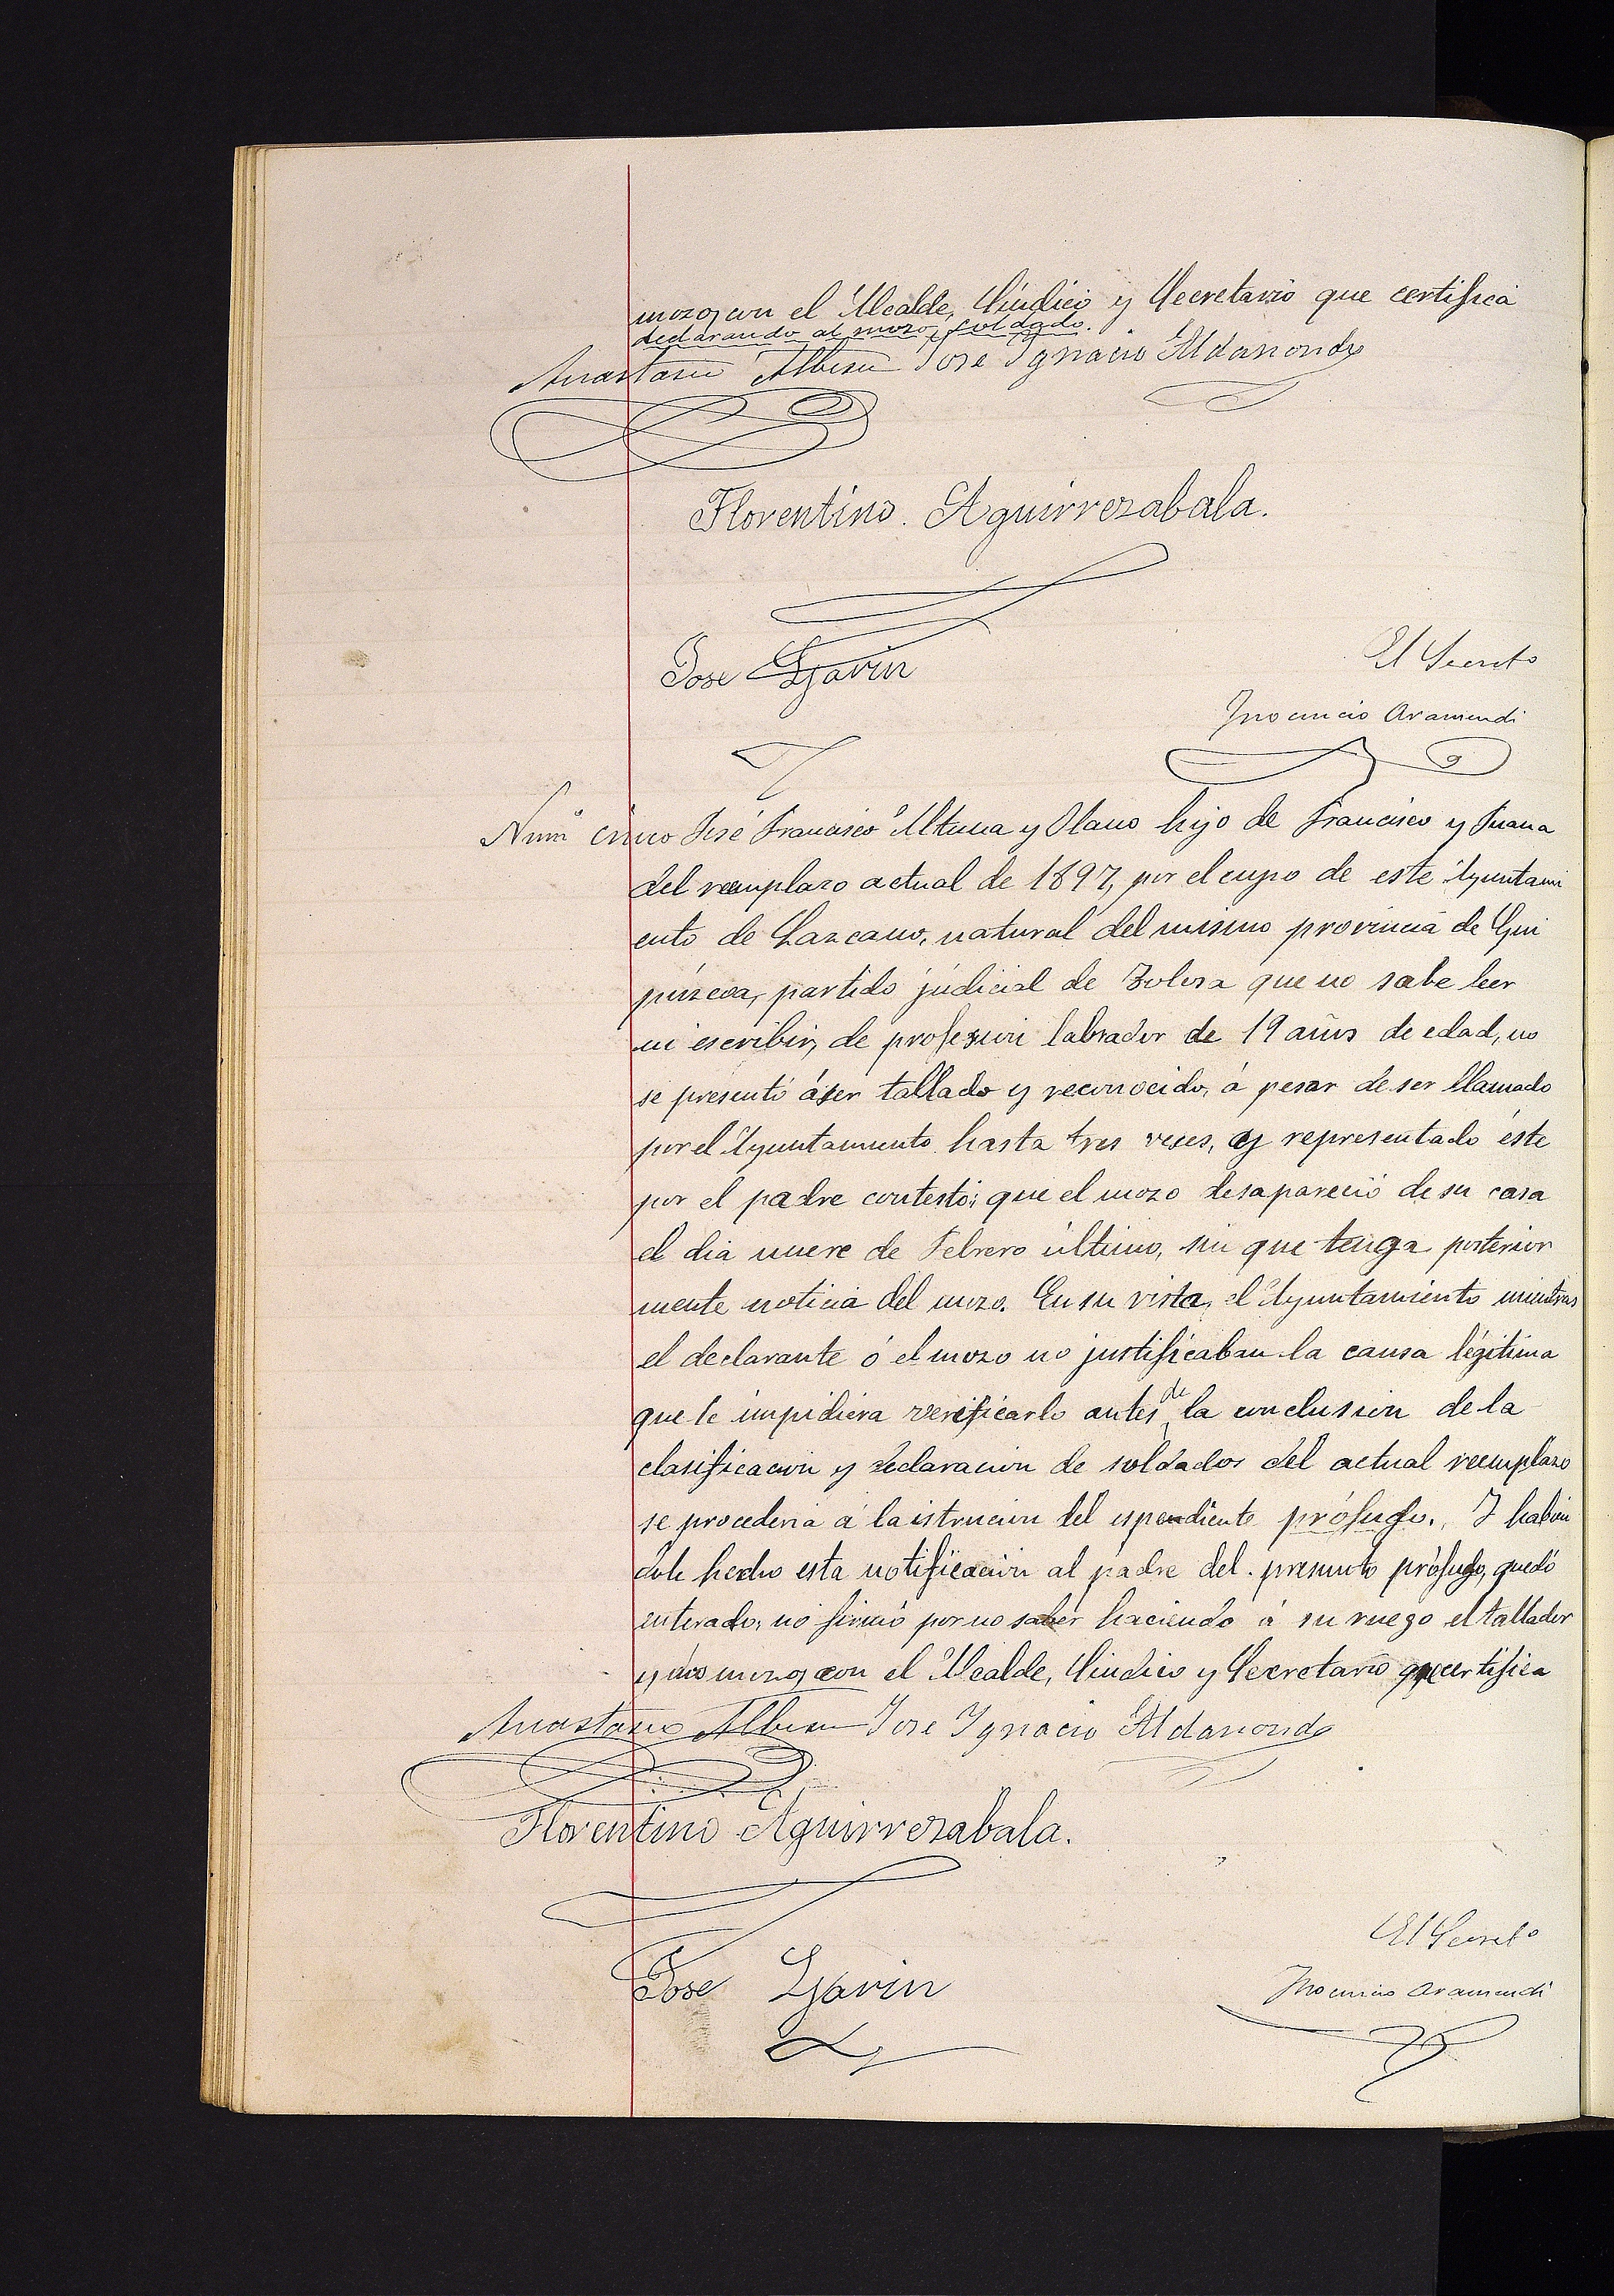 mozo, con el Alcalde, Síndico y Secretario que certifica
declarando al mozo, soldado.
Anastasio Albisu Jose Ygnacio Aldasondo
Florentino. Aguirrezabala.
Jose Garin
El Secreto
Inocencio Aramendi
Numº cinco José Francisco Altuna y Olano hijo de Francisco y Juana
del reemplazo actual de 1897, por el cupo de este Ayuntami
ento de Lazcano, natural del mismo provincia de Gui
púzcoa, partido júdicial de Tolosa que no sabe leer
ni escribir, de profesion labrador de 19 años de edad, no
se presentó á ser tallado y reconocido, á pesar de ser llamado
por el Ayuntamiento hasta tres veces, y representado éste
por el padre contestó: que el mozo desapareció de su casa
el dia nueve de Febrero último, sin que tenga posterior
mente noticia del mozo. En su vista, el Ayuntamiento mientras
el declarante ó el mozo no justificaban la causa légitima
que le impidiera verificarlo antes de la conclusion de la
clasificacion y declaracion de soldados del actual reemplazo
se procederia á la istrucion del espendiente prófugo. Y habien
dole hecho esta notificación al padre del presunto prófugo, quedó
enterado, no firmó por no saber haciendo á su ruego el tallador
y mozo, con el Alcalde, Síndico y Secretario que certifica
Anastasio Albisu Jose Ygnacio Aldasondo
Florentino Aguirrezabala.
Jose Garin
El Secreto
Inocencio Aramendi